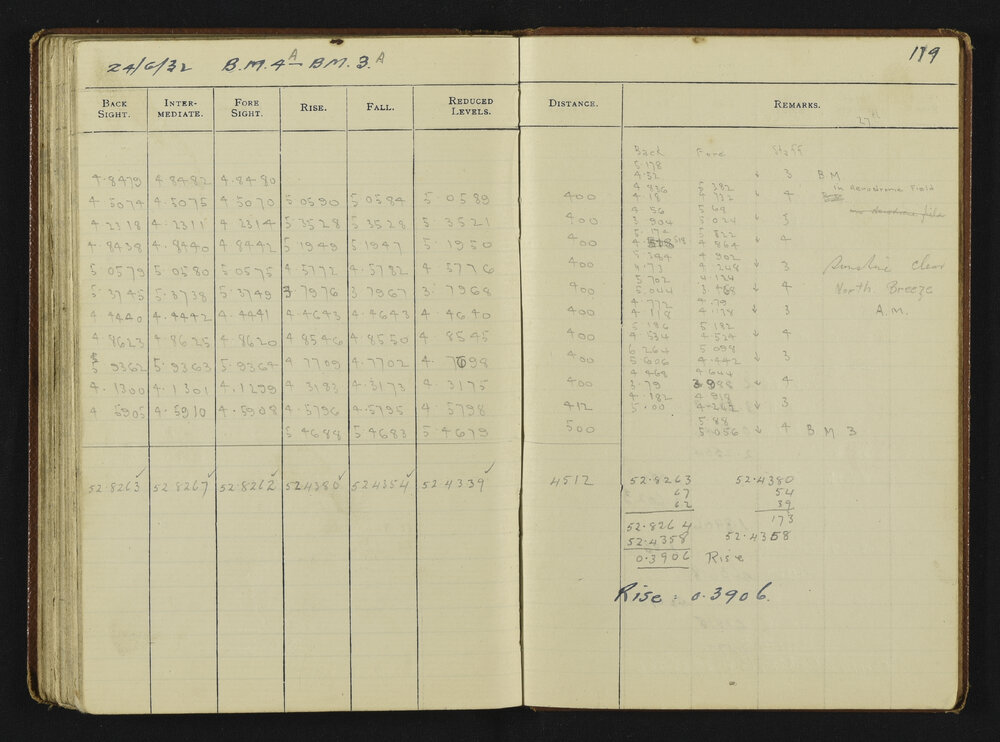 24/6/32 B.M.4A - BM.3A
119
BACK SIGHT. INTER-MEDIATE. FORE SIGHT. RISE. FALL. REDUCED LEVELS. DISTANCE. REMARKS.
27th
Back Fore Staff
5.178
4.8479 4.8482 4.8480 4.52 3 B M
4.836 5.382 in Aerodrome Field
4.5074 4.5075 4.5070 5.0590 5.0584 5.0589 400 4.18 4.732 4
4.56 5.68
4.2318 4.2311 4.2314 5.3528 5.3528 5.3521 400 3.904 5.024 3
5.174 5.822
4.8438 4.8440 4.8442 5.1949 5.1947 5.1950 400 4.518 4.864 4
5.384 4.902
5.0579 5.0580 5.0575 4.5772 4.5782 4.5776 400 4.73 4.248 3 Sunshine Clear
5.702 4.124
5.3745 5.3738 5.3749 3.7976 3.7967 3.7968 400 5.044 3.468 4 North Breeze
4.772 4.79
4.4440 4.4442 4.4441 4.4643 4.4643 4.4640 400 4.118 4.138 3 A.M.
5.186 5.182
4.8623 4.8625 4.8620 4.8546 4.8550 4.8545 400 4.534 4.524 4
6.264 5.098
5.9362 5.9363 5.9364 4.7709 4.7702 4.7698 400 5.606 4.442 3
4.468 4.644
4.1300 4.1301 4.1299 4.3183 4.3173 4.3175 400 3.79 3.988 4
4.918
4.5905 4.5910 4.5908 4.5796 4.5795 4.5798 412 4.242 3
5.88
5.4688 5.4683 5.4679 500 5.056 4 B M 3
52.8263 52.8267 52.8262 52.4380 52.4354 52.4339 4512 52.8263 52.4380
67 54
62 39
173
52.8264
52.4358 52.4358
0.3906 Rise
Rise: 0.3906.